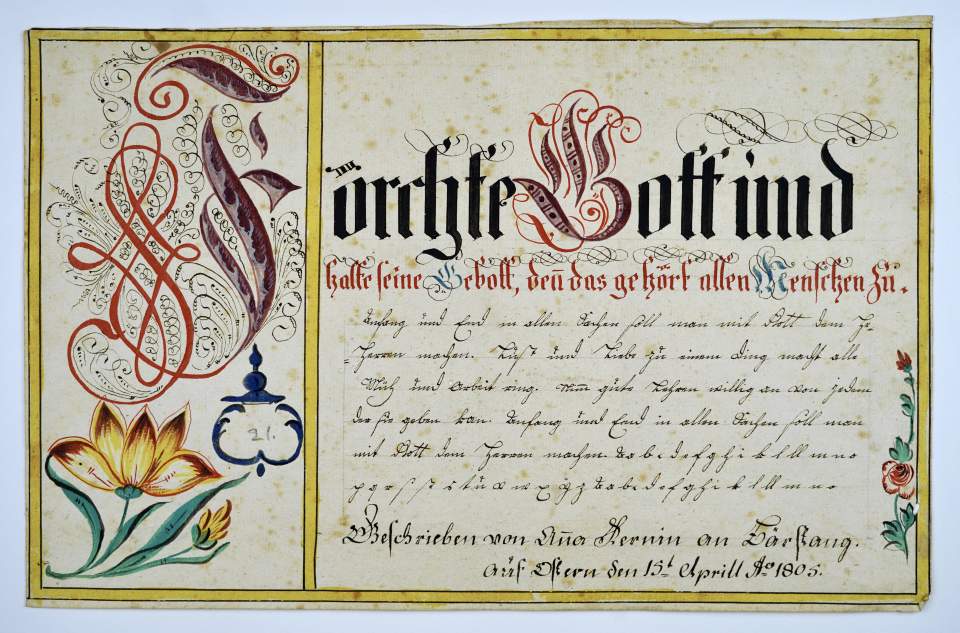 Förchte Gott und
halte seine Gebott, den̄ das gehört allen Menschen zu.
Anfang und End in allen Sachen soll man mit Gott dem He-
=Herren machen. Lust und Liebe zu einem Ding macht alle
Müh und Arbeit ring. Nim̄ gute Lehren willig an von jedem
der sie geben kan. Anfang und End in allen Sachen soll man
mit Gott dem Herren machen. a b c d e f g h i k l ll m n o
p q r s ß st t u v w x y z a b c d e f g h i k l ll m n o
21.
Geschrieben von An̄a Kernin an Tärstang.
Auf Ostern den 15t Aprill Ao 1805.